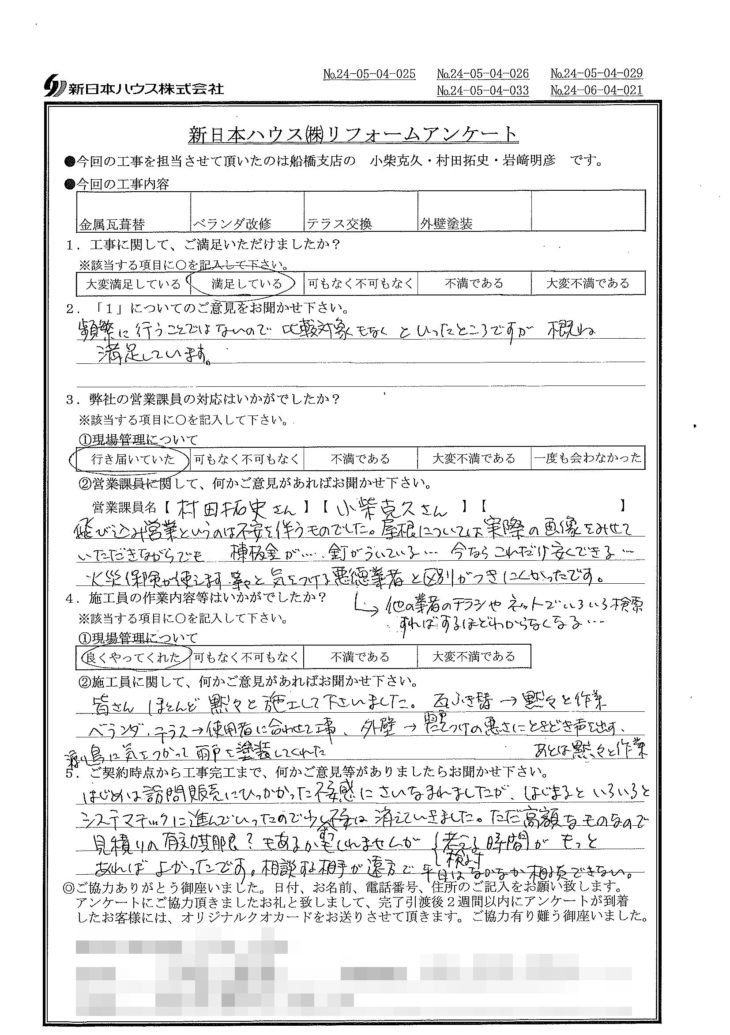 №24-05-04-025 №24-05-04-026 №24-05-04-029
新日本ハウス株式会社 №24-05-04-033 №24-06-04-021
新日本ハウス㈱リフォームアンケート
●今回の工事を担当させて頂いたのは船橋支店の 小柴克久・村田拓史・岩﨑明彦 です。
●今回の工事内容
金属瓦葺替 ベランダ改修 テラス交換 外壁塗装
1．工事に関して、ご満足いただけましたか？
※該当する項目に○を記入して下さい。
大変満足している 満足している 可もなく不可もなく 不満である 大変不満である
2．「1」についてのご意見をお聞かせ下さい。
頻繁に行うことではないので 比較対象もなく といったところですが 概ね
満足しています。
3．弊社の営業課員の対応はいかがでしたか？
※該当する項目に○を記入して下さい。
①現場管理について
行き届いていた 可もなく不可もなく 不満である 大変不満である 一度も会わなかった
②営業課員に関して、何かご意見があればお聞かせ下さい。
営業課員名【 村田拓史さん 】【 小柴克久さん 】【 】
飛び込み営業というのは不安を伴うものでした。屋根については実際の画像をみせて
いただきながらでも 棟板金が…. 釘がういている… 今なら これだけ安くできる…
火災保険が使えます 等々と 気をつける悪徳業者と区別がつきにくかったです。
4．施工員の作業内容等はいかがでしたか？
↳ 他の業者のチラシや ネットでいろいろ検索
※該当する項目に○を記入して下さい。
すればするほどわからなくなる…
①現場管理について
良くやってくれた 可もなく不可もなく 不満である 大変不満である
②施工員に関して、何かご意見があればお聞かせ下さい。
皆さん ほとんど 黙々と 施工して下さいました。 瓦ふき替 → 黙々と作業
ベランダ、テラス→使用者に合わせて工事、 外壁 → 立てつけの悪さにときどき声を出す、
鳥に気をつかって 雨戸を塗装してくれた あとは黙々と作業
5．ご契約時点から工事完工まで、何かご意見等がありましたらお聞かせ下さい。
はじめは訪問販売にひっかかった不安感にさいなまれましたが、はじまると いろいろと
システマチックに進んでいったので 不安は 消えていきました。ただ高額なものなので
見積りの有効期限？もあるかもしれませんが 考える時間が もっと
検討
あれば よかったです。相談する相手が遠方で 平日はなかなか相談できない。
◎ご協力ありがとう御座いました。日付、お名前、電話番号、住所のご記入をお願い致します。
アンケートにご協力頂きましたお礼と致しまして、完了引渡後２週間以内にアンケートが到着
したお客様には、オリジナルクオカードをお送りさせて頂きます。ご協力有り難う御座いました。